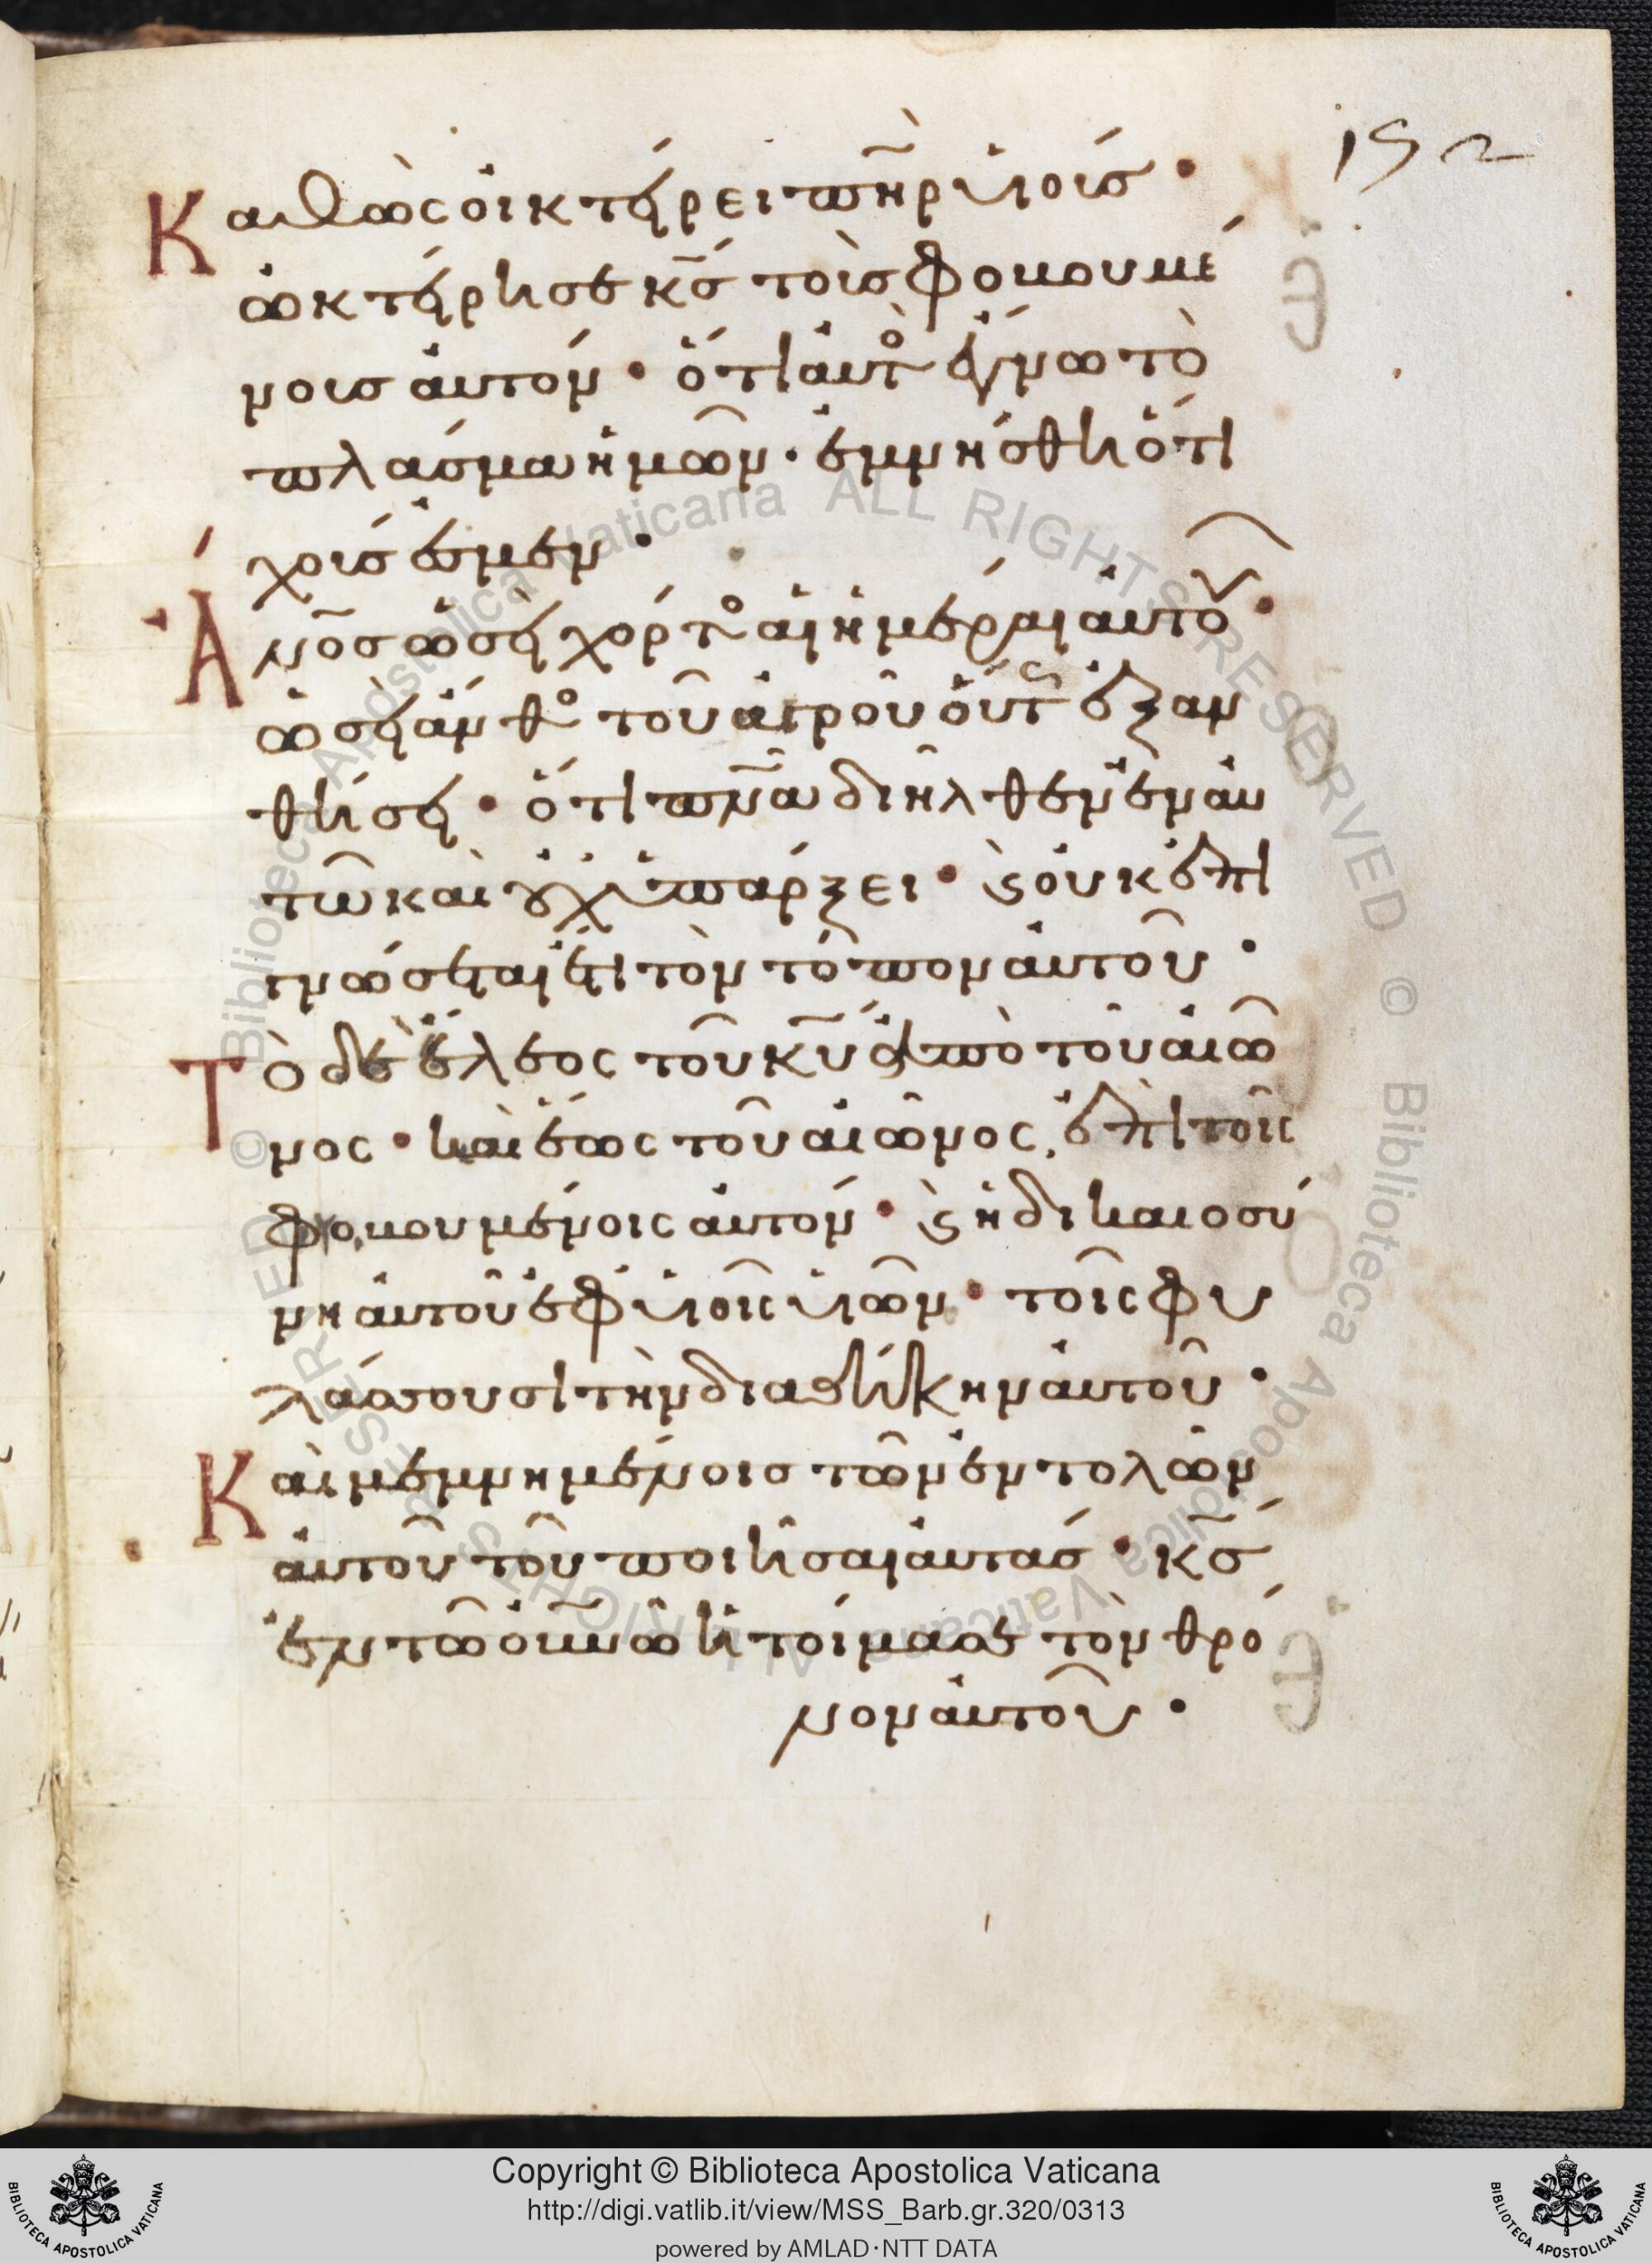 152
Καθὼς οἰκτείρει πη̅ρ υἱούσ·
ὠκτείρησε κ̅ς τοὺσ φοβουμέ
νουσ αὐτόν· ὅτι αὐτὸς ἔγνω τὸ
πλάσμα ἡμῶν· ἐμνήσθη ὅτι
χοῦσ ἐσμεν·
Ἄν̅οσ ὡσεὶ χόρτος αἱ ἡμέραι αὐτοῦ·
ὡσεὶ ἄνθος τοῦ ἀγροῦ οὕτως ἐξαν
θήσει· ὅτι πν̅α διῆλθεν ἐν αὐ
τῶ καὶ οὐχ ὑπάρξει· ϗ οὐκ ἐπι
γνώσεται ἔτι τὸν τόπον αὐτοῦ·
Τὸ δὲ ἔλεος τοῦ κ̅υ ἀπὸ τοῦ αἰῶ
νος· καὶ ἕως τοῦ αἰῶνος, ἐπὶ τοῖς
φοβουμένοις αὐτόν· ϗ ἡ δικαιοσύ
νη αὐτοῦ ἐφ υἱοῖς υἱῶν· τοῖς φυ
λάσσουσι τὴν διαθήκην αὐτοῦ·
Καὶ μεμνημένοισ τῶν ἐντολῶν
αὐτοῦ τοῦ ποιῆσαι αὐτάσ· κ̅σ
ἐν τῶ οὐν̅ῶ ἡτοίμασε τὸν θρό
νον αὐτοῦ·
© Biblioteca Apostolica Vaticana ALL RIGHTS RESERVED © Biblioteca Apostolica Vaticana ALL RIGHTS RESERVED
Copyright © Biblioteca Apostolica Vaticana
http://digi.vatlib.it/view/MSS_Barb.gr.320/0313
powered by AMLAD·NTT DATA
BIBLIOTECA APOSTOLICA VATICANA
BIBLIOTECA APOSTOLICA VATICANA